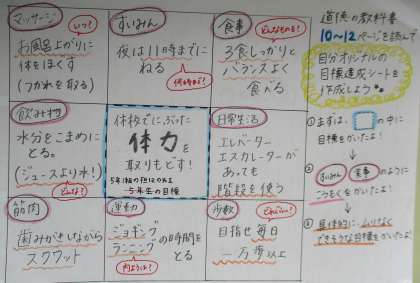 マッサージ
いつ?
お風呂上がりに
体をほぐす
(つかれを取る)
すいみん
夜は11時までに
ねる
何時まで?
食事
どんなもの?
3食しっかりと
バランスよく
食べる
飲み物
水分をこまめに
とる。
(ジュースより水!)
どんな?
休校でにぶった
体力を
取りもどす!
5年生の目標
日常生活
エレベーター
エスカレーターが
あっても
階段を使う
筋肉
歯みがきしながら
スクワット
運動
ジョギング
ランニング
の時間を
とる
内ようは?
歩数
どれくらい?
目指せ毎日
一万歩以上
道徳の教科書
10〜12ページを読んで
自分オリジナルの
目標達成シートを
作成しよう
①まずは、□の中に
目標をかいたよ!
②すいみん 食事 のように
こうもくをかいたよ!
③具体的に、ムリなく
できそうな目標をかいたよ!